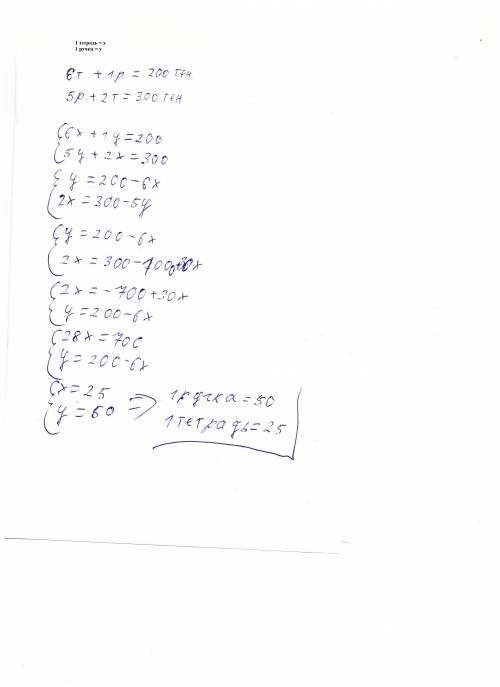 1 тетрадь = x
1 ручка = y
6т + 1р = 200 тен.
5р + 2т = 300 тен
{6x + 1y = 200
{5y + 2x = 300
{y = 200 - 6x
{2x = 300 - 5y
{y = 200 - 6x
{2x = 300 - 1000+30x
{2x = - 700 + 30x
{y = 200 - 6x
{28x = 700
{y = 200 - 6x
{x = 25
{y = 50 => 1 ручка = 50
1 тетрадь = 25